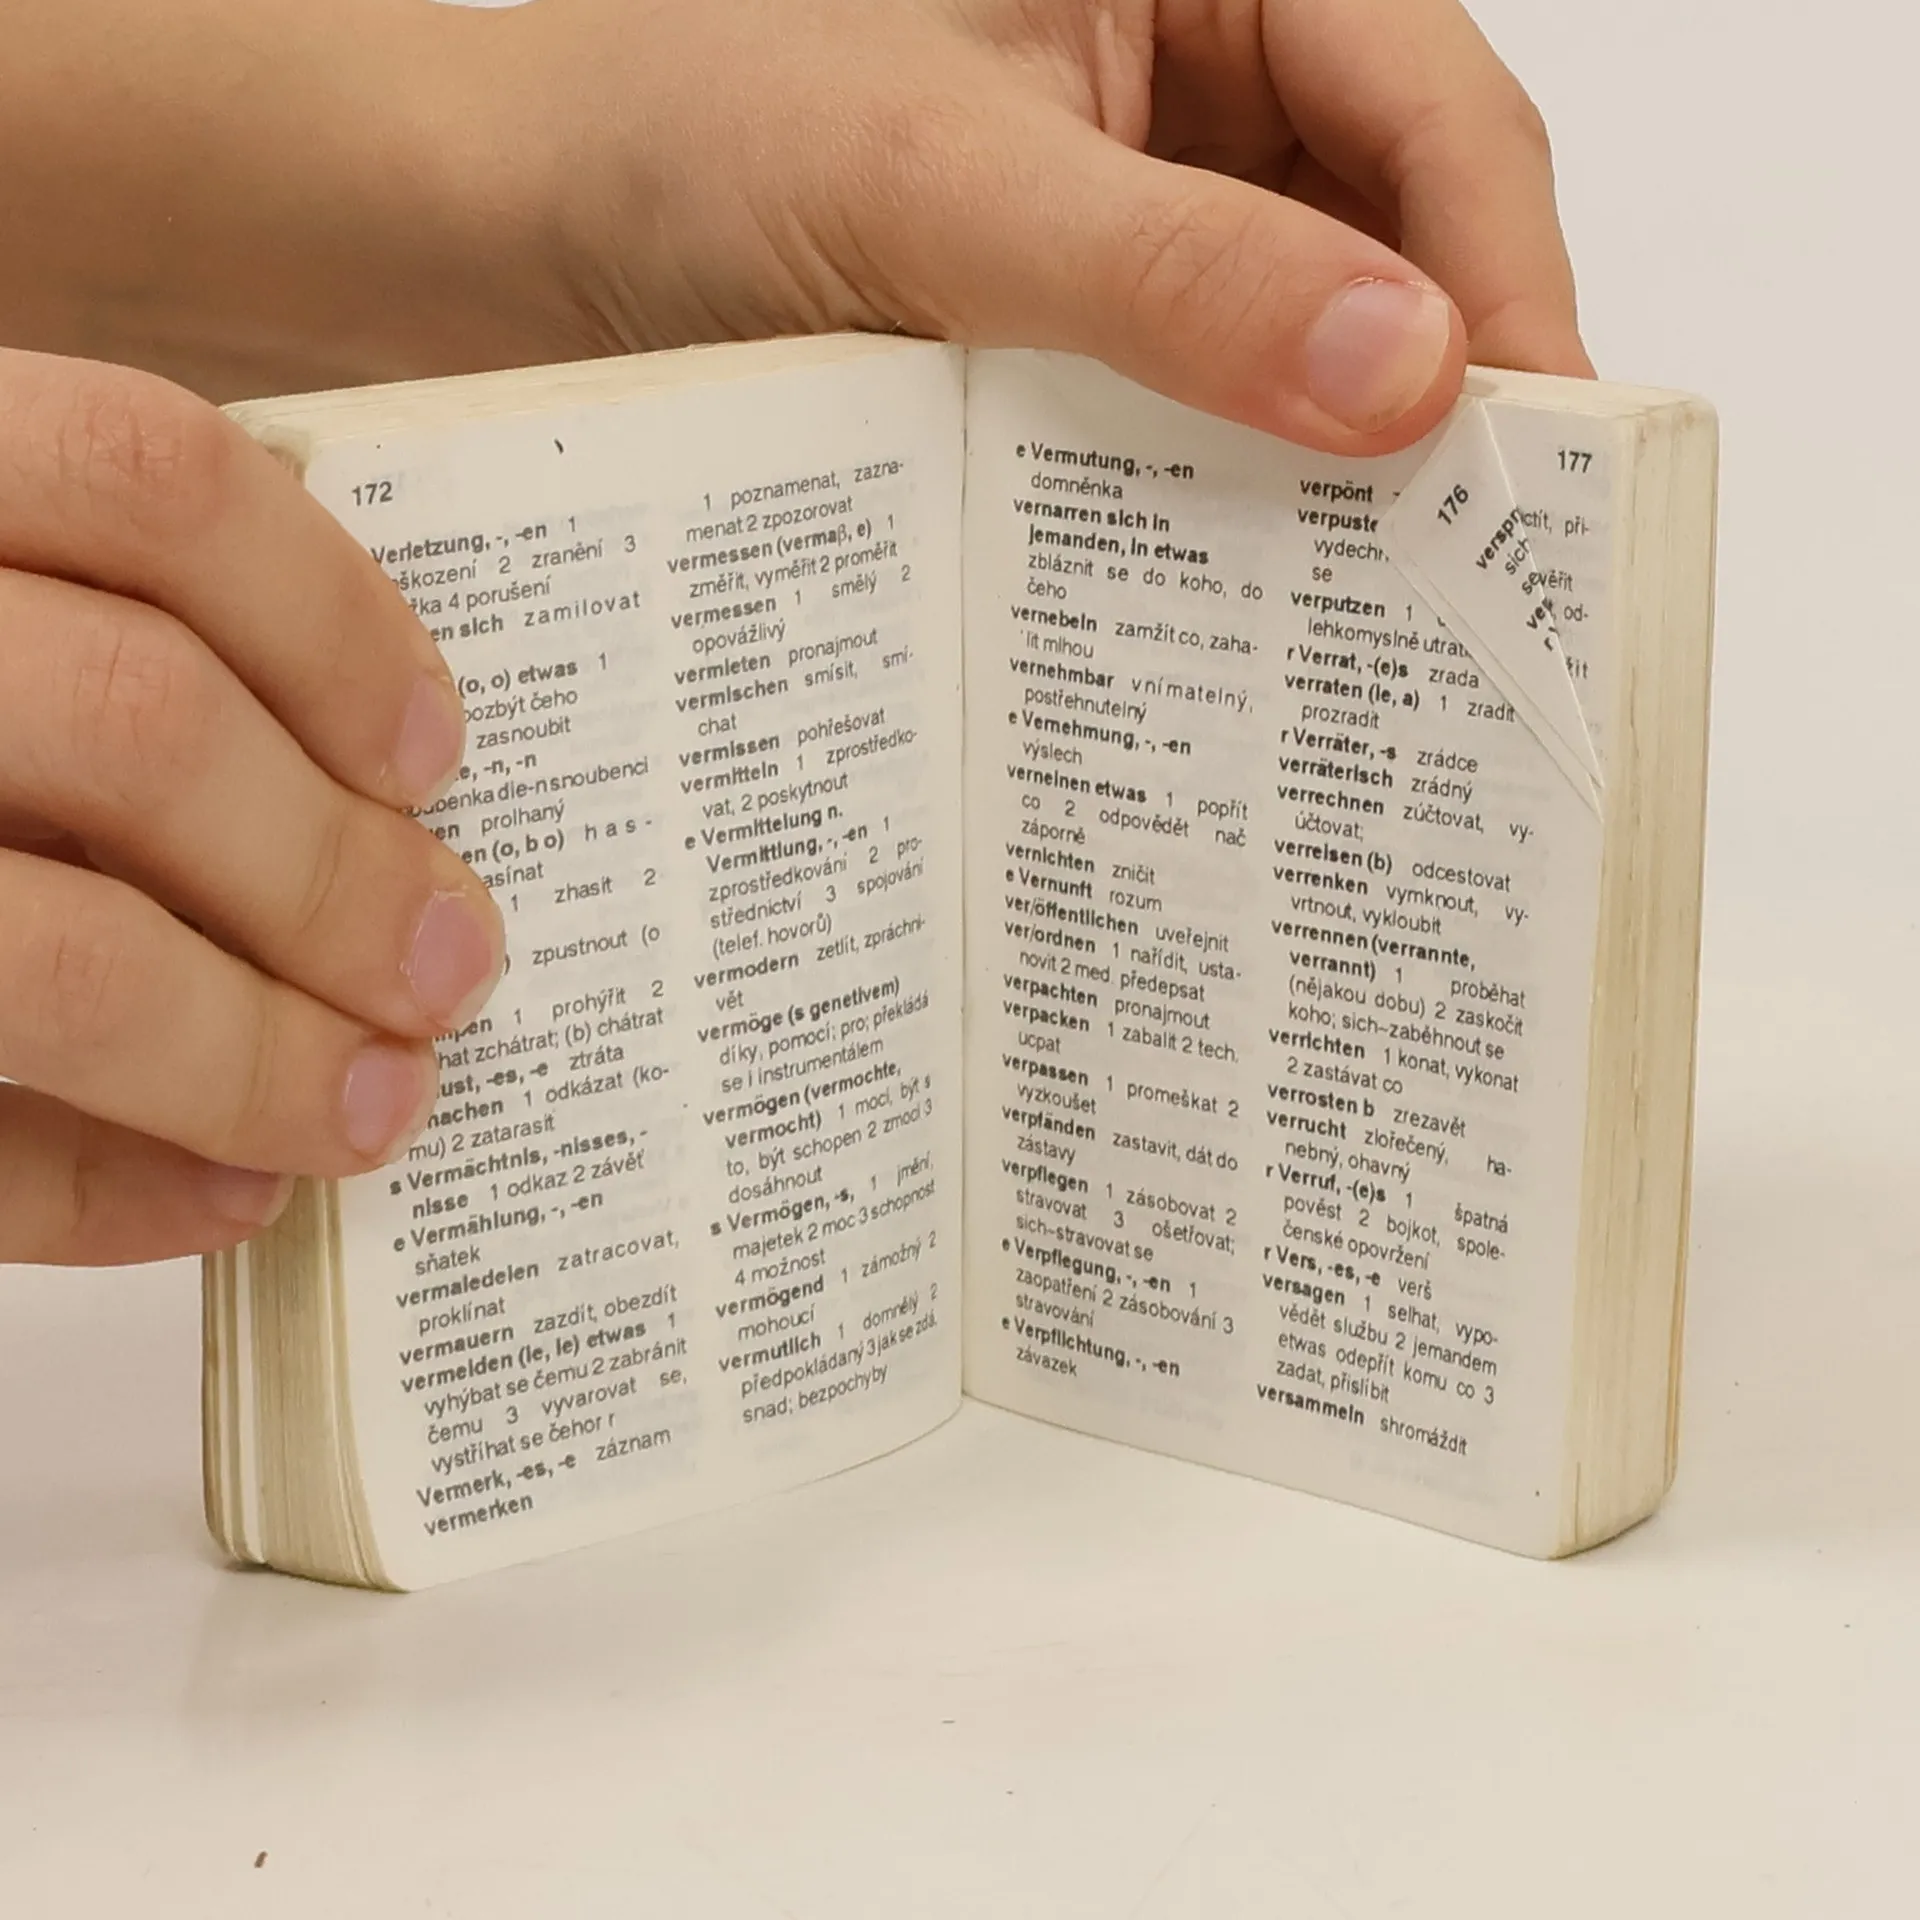 172
Verletzung, -, -en 1
2 zranění 3
4 porušení
sich zamilovat
(o, o) etwas 1
pozbýt čeho
zasnoubit
-n, -n
die -n snoubenci
prolhaný
(o, b o) has-
1 zhasit 2
zpustnout (o
1 prohýřit 2
zchátrat; (b) chátrat
-es, -e ztráta
1 odkázat (ko-
mu) 2 zatarasit
s Vermächtnis, -nisses, -
nisse 1 odkaz 2 závěť
e Vermählung, -, -en
sňatek
vermaledeien zatracovat,
proklínat
vermauern zazdít, obezdít
vermeiden (ie, ie) etwas 1
vyhýbat se čemu 2 zabránit
čemu 3 vyvarovat se,
vystříhat se čehor r
Vermerk, -es, -e záznam
vermerken
1 poznamenat, zazna-
menat 2 zpozorovat
vermessen (vermaß, e) 1
změřit, vyměřit 2 proměřit
vermessen 1 smělý 2
opovážlivý
vermieten pronajmout
vermischen smísit, smí-
chat
vermissen pohřešovat
vermitteln 1 zprostředko-
vat, 2 poskytnout
e Vermittelung n.
Vermittlung, -, -en 1
zprostředkování 2 pro-
střednictví 3 spojování
(telef. hovorů)
vermodern zetlít, zpráchni-
vět
vermöge (s genetivem)
díky, pomocí; pro; překládá
se i instrumentálem
vermögen (vermochte,
vermocht) 1 moci, být s
to, být schopen 2 zmoci 3
dosáhnout
s Vermögen, -s, 1 jmění,
majetek 2 moc 3 schopnost
4 možnost
vermögend 1 zámožný 2
mohoucí
vermutlich 1 domnělý 2
předpokládaný 3 jak se zdá,
snad; bezpochyby
e Vermutung, -, -en
domněnka
vernarren sich in
jemanden, in etwas
zbláznit se do koho, do
čeho
vernebeln zamžít co, zaha-
lit mlhou
vernehmbar vnímatelný,
postřehnutelný
e Vernehmung, -, -en
výslech
verneinen etwas 1 popřít
co 2 odpovědět nač
záporně
vernichten zničit
e Vernunft rozum
ver/öffentlichen uveřejnit
ver/ordnen 1 nařídit, usta-
novit 2 med. předepsat
verpachten pronajmout
verpacken 1 zabalit 2 tech.
ucpat
verpassen 1 promeškat 2
vyzkoušet
verpfänden zastavit, dát do
zástavy
verpflegen 1 zásobovat 2
stravovat 3 ošetřovat;
sich~stravovat se
e Verpflegung, -, -en 1
zaopatření 2 zásobování 3
stravování
e Verpflichtung, -, -en
závazek
verpönt
se
verputzen 1
lehkomyslně
r Verrat, -(e)s zrada
verraten (ie, a) 1 zradit
prozradit
r Verräter, -s zrádce
verräterisch zrádný
verrechnen zúčtovat, vy-
účtovat;
verreisen (b) odcestovat
verrenken vymknout, vy-
vrtnout, vykloubit
verrennen (verrannte,
verrannt) 1 proběhat
(nějakou dobu) 2 zaskočit
koho; sich~zaběhnout se
verrichten 1 konat, vykonat
2 zastávat co
verrosten b zrezavět
verrucht zlořečený, ha-
nebný, ohavný
r Verruf, -(e)s 1 špatná
pověst 2 bojkot, spole-
čenské opovržení
r Vers, -es, -e verš
versagen 1 selhat, vypo-
vědět službu 2 jemandem
etwas odepřít komu co 3
zadat, přislíbit
versammeln shromáždit
176
sich
177
při-
od-